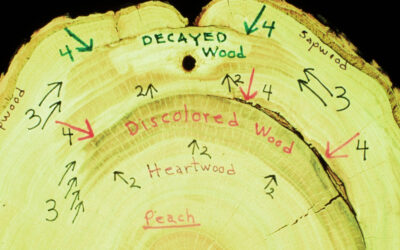 DECAYED
Wood
4
4
Sapwood
pwood
2
2
4
3
3
4
Discolored Wood
4
2
2
Heartwood
2
3
Peach